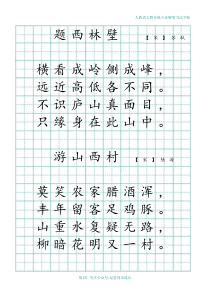 题西林壁
【宋】苏轼
横看成岭侧成峰，
远近高低各不同。
不识庐山真面目，
只缘身在此山中。
游山西村
【宋】陆游
莫笑农家腊酒浑，
丰年留客足鸡豚。
山重水复疑无路，
柳暗花明又一村。